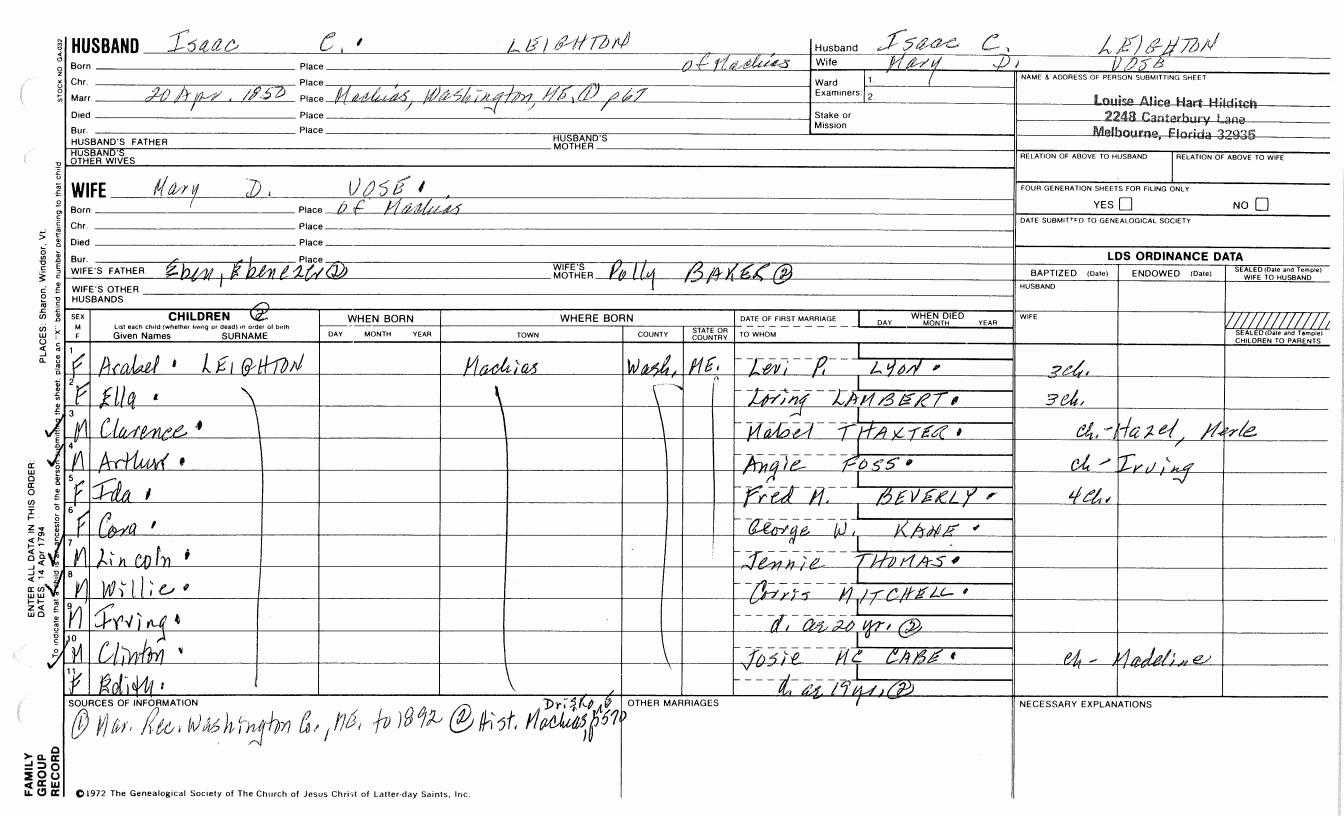 STOCK NO. GA-032
HUSBAND Isaac C. LEIGHTON
Born Place of Machias
Chr. Place
Marr 20 Apr. 1850 Place Machias, Washington, ME. ① p67
Died Place
Bur. Place
HUSBAND'S FATHER HUSBAND'S MOTHER
HUSBAND'S OTHER WIVES
Husband Isaac C. LEIGHTON
Wife Mary D. VOSE
Ward Examiners: 1 2
Stake or Mission
NAME & ADDRESS OF PERSON SUBMITTING SHEET
Louise Alice Hart Hilditch
2248 Canterbury Lane
Melbourne, Florida 32935
RELATION OF ABOVE TO HUSBAND RELATION OF ABOVE TO WIFE
FOUR GENERATION SHEETS FOR FILING ONLY
YES NO
DATE SUBMITTED TO GENEALOGICAL SOCIETY
WIFE Mary D. VOSE
Born Place of Machias
Chr. Place
Died Place
Bur. Place
WIFE'S FATHER Eben, Ebenezer ② WIFE'S MOTHER Polly BAKER ②
WIFE'S OTHER HUSBANDS
LDS ORDINANCE DATA
BAPTIZED (Date) ENDOWED (Date) SEALED (Date and Temple) WIFE TO HUSBAND
HUSBAND
WIFE
SEALED (Date and Temple) CHILDREN TO PARENTS
SEX M F CHILDREN ② List each child (whether living or dead) in order of birth Given Names SURNAME
WHEN BORN DAY MONTH YEAR
WHERE BORN TOWN COUNTY STATE OR COUNTRY
DATE OF FIRST MARRIAGE TO WHOM
WHEN DIED DAY MONTH YEAR
1 F Arabel LEIGHTON Machias Wash. ME. Levi P. LYON 3 ch.
2 F Ella Loring LAMBERT 3 ch.
3 M Clarence Mabel THAXTER ch.-Hazel, Merle
4 M Arthur Angie FOSS ch-Irving
5 F Ida Fred M. BEVERLY 4 ch.
6 F Cora George W. KANE
7 M Lincoln Jennie THOMAS
8 M Willie Corris MITCHELL
9 M Irving d. ae 20 yr. ②
10 M Clinton Josie MC CABE ch- Madeline
11 F Edith d. ae 19 yr. ②
SOURCES OF INFORMATION
① Mar. Rec. Washington Co., ME. to 1892 ② Hist. Machias, p570
OTHER MARRIAGES
NECESSARY EXPLANATIONS
FAMILY GROUP RECORD
ENTER ALL DATA IN THIS ORDER:
DATES: 14 Apr 1794 PLACES: Sharon, Windsor, Vt.
To indicate that a child is an ancestor of the person submitting the sheet, place an "X" behind the number pertaining to that child
©1972 The Genealogical Society of The Church of Jesus Christ of Latter-day Saints, Inc.